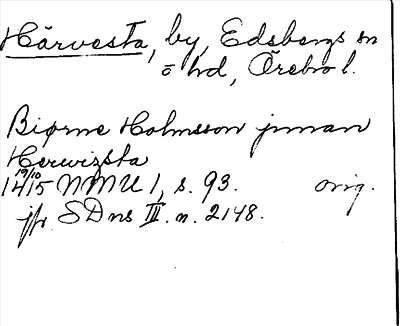 Härvesta, by, Edsbergs sn
o hd, Örebro l.
Biørne Holmsson jnnan
Herwizsta
19/10
1415 NMU 1, s. 93. orig.
jfr SDns III. n. 2148.